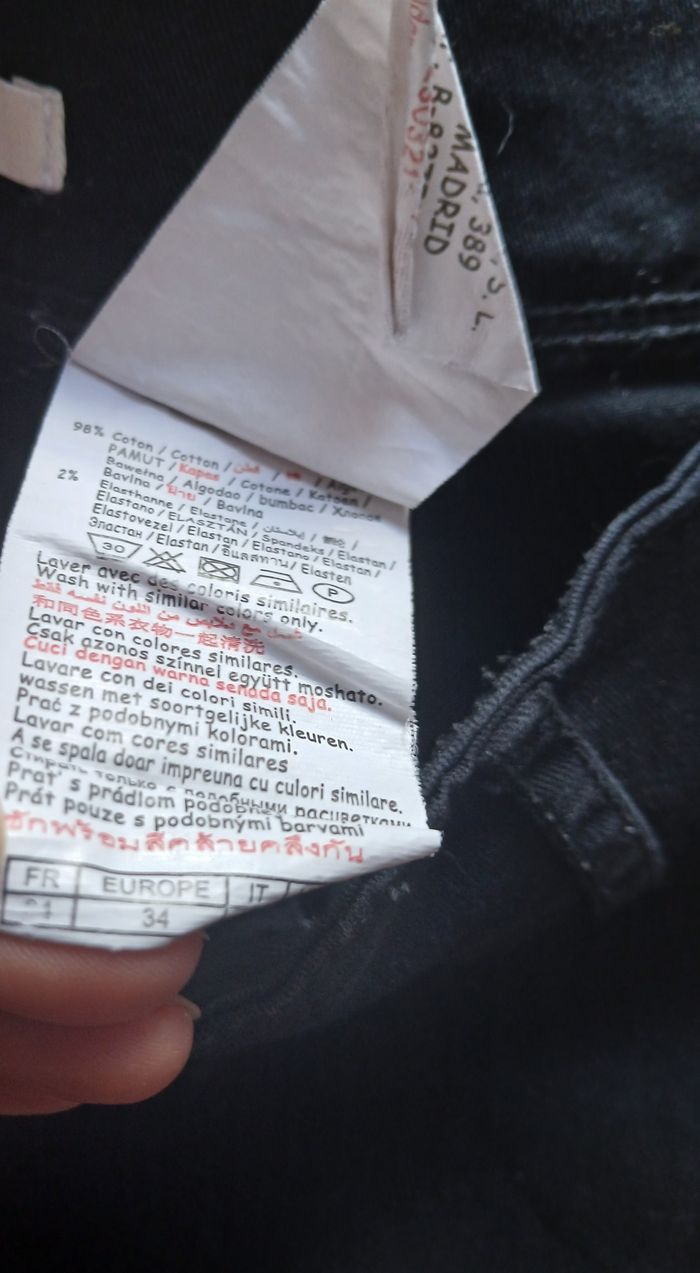 389
MADRID
98% Coton / Cotton / قطن /
PAMUT / Kapas / Cotone / Katoen /
Bawełna / Algodao / bumbac / Хлопок
Bavlna / ฝ้าย / Bavlna
2% Elasthanne / Elastane /
Elastano / ELASZTÁN / Spandeks / Elastan /
Elastovezel / Elastan / Elastano / Elastan /
Эластан / Elastan / อีลาสทาน / Elasten
30 P
Laver avec des coloris similaires.
Wash with similar colors only.
تغسل مع ملابس من اللون نفسه فقط
和同色系衣物一起清洗
Lavar con colores similares.
Csak azonos színnel együtt moshato.
Cuci dengan warna senada saja.
Lavare con dei colori simili.
wassen met soortgelijke kleuren.
Prać z podobnymi kolorami.
Lavar com cores similares
A se spala doar impreuna cu culori similare.
Стирать только с подобными расцветками
Prat' s prádlom podobne
Prát pouze s podobnými barvami
ซักพร้อมสีคล้ายคลึงกัน
FR EUROPE IT
34